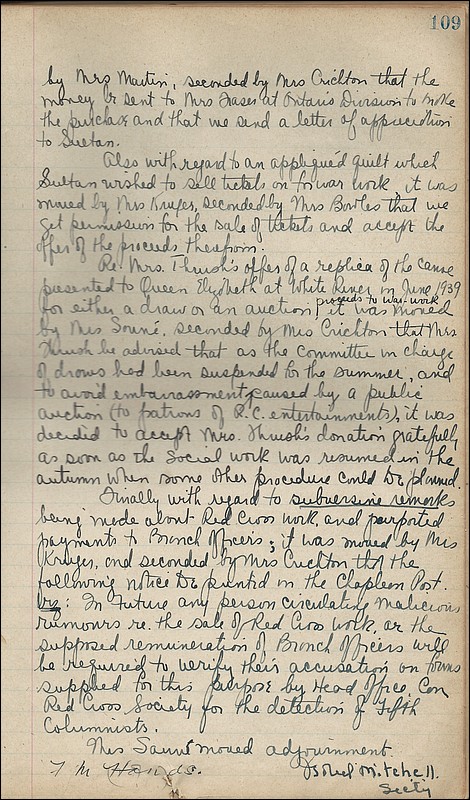 109
by Mrs Martin, seconded by Mrs Crichton that the
money be sent to Mrs Fraser at Ontario Division to make
the purchase and that we send a letter of appreciation
to Sultan.
Also with regard to an appliqued quilt which
Sultan wished to sell tickets on for war work, it was
moved by Mrs Kruger, seconded by Mrs Bowles that we
get permission for the sale of tickets and accept the
offer of the proceeds therefrom.
Re. Mrs. Thrush's offer of a replica of the canoe
presented to Queen Elizabeth at White River in June 1939
proceeds to war work
for either a draw or an auction, it was moved
by Mrs Sauvé, seconded by Mrs Crichton that Mrs
Thrush be advised that as the committee in charge
of draws had been suspended for the summer, and
to avoid embarrassment caused by a public
auction (to patrons of R.C. entertainments), it was
decided to accept Mrs. Thrush's donation gratefully
as soon as the Social work was resumed in the
autumn when some other procedure could be planned.
Finally with regard to subversive remarks
being made about Red Cross work, and purported
payments to Branch Officers; it was moved by Mrs
Kruger, and seconded by Mrs Crichton that the
following notice be printed in the Chapleau Post.
viz: In future any person circulating malicious
rumours re. the sale of Red Cross work, or the
supposed remuneration of Branch Officers will
be required to verify their accusation on forms
supplied for this purpose by Head Office, Can
Red Cross Society for the detection of Fifth
Columnists.
Mrs Sauvé moved adjournment.
Isobel Mitchell.
Secty